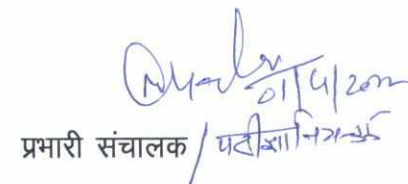 01/4/2022
प्रभारी संचालक / परीक्षा नियन्त्रक